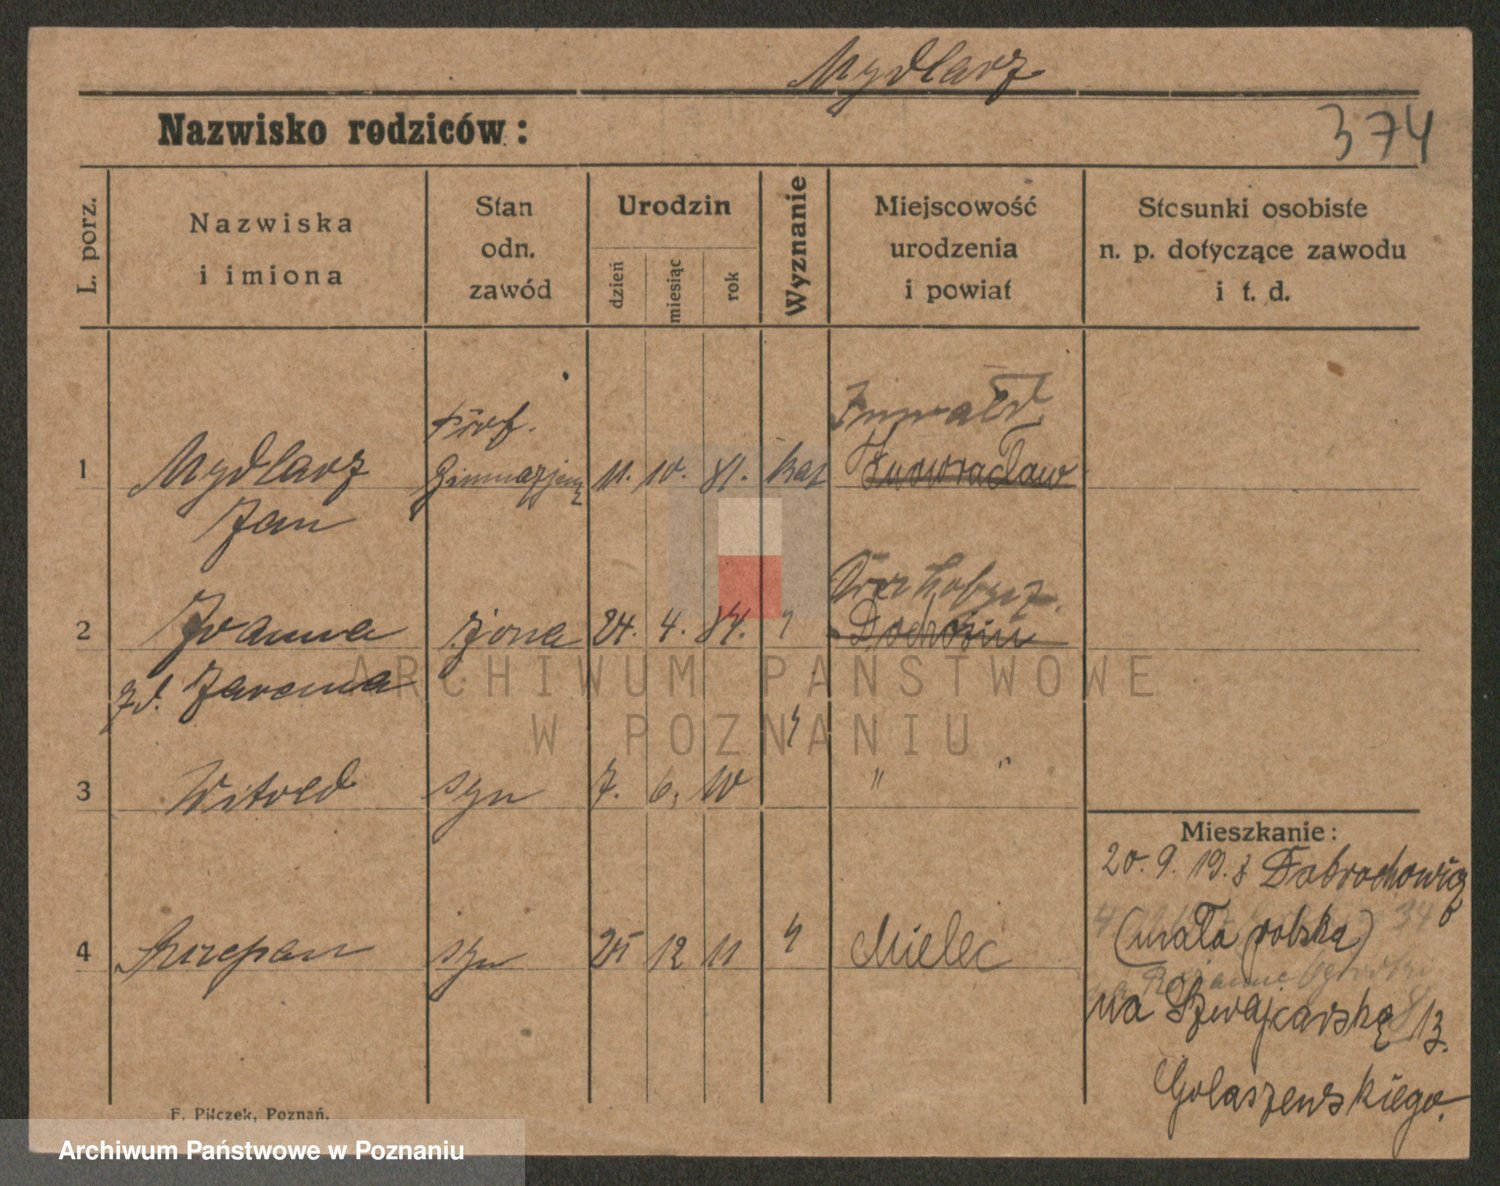 Mydlarz
Nazwisko rodziców:
374
L. porz.
Nazwiska
i imiona
Stan
odn.
zawód
Urodzin
dzień
miesiąc
rok
Wyznanie
Miejscowość
urodzenia
i powiat
Stosunki osobiste
n. p. dotyczące zawodu
i t. d.
1
Mydlarz
Jan
Prof.
Gimnazjum
11. 10. 81.
kat
Inwałd
Inowracław
2
Joanna
zd. Jarema
żona
24. 4. 84.
"
Drohobycz
3
Witold
syn
7. 6. 10
"
" "
4
Szczepan
syn
25 12 11
"
Mielec
Mieszkanie:
20. 9. 19. z
(mała polska)
34
na Szwajcarską 13.
Gołaszewskiego.
F. Pilczek, Poznań.
ARCHIWUM PAŃSTWOWE
W POZNANIU
Archiwum Państwowe w Poznaniu